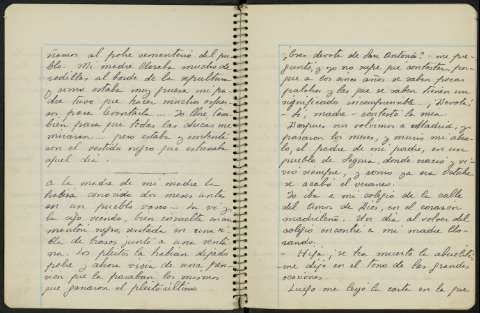 vamos al pobre cementerio del pue-
blo. Mi madre lloraba mucho de
rodillas al borde de la sepultura
y como estaba muy gruesa mi pa-
dre tuvo que hacer mucho esfuer-
zo para levantarla... Yo lloré tam-
bién para que todas las chicas me
miraran... pero estaba contenta
con el vestido negro que estrenaba
aquel día.
A la madre de mi madre la
había conocido dos meses antes
en un pueblo vasco — la vi y
la sigo viendo, bien envuelta en un
mantón negro, sentada en una si-
lla de brazos junto a una venta-
na. Los pleitos la habían dejado
pobre y ahora vivía de una pen-
sión que le pasaban los mismos
que ganaron el pleito último.
¿Eres devota de San Antonio? me pre-
guntó, y yo no supe qué contestar por-
que a los cinco años se saben pocas
palabras y las que se saben tienen un
significado incomprensible. ¡Devota!
- Sí, madre - contestó la mía.
Después nos volvimos a Madrid, y
pasaron los meses, y murió mi abue-
lo, el padre de mi padre, en un
pueblo de Segovia donde nació y vi-
vió siempre, y como ya era Octubre
se acabó el veraneo.
Yo iba a mi colegio de la calle
del Amor de Dios, en el corazón
madrileño. Un día al volver del
colegio encontré a mi madre llo-
rando.
- Hija, se ha muerto la abuelita,
me dijo en el tono de las grandes
ocasiones.
Luego me leyó la carta en la que